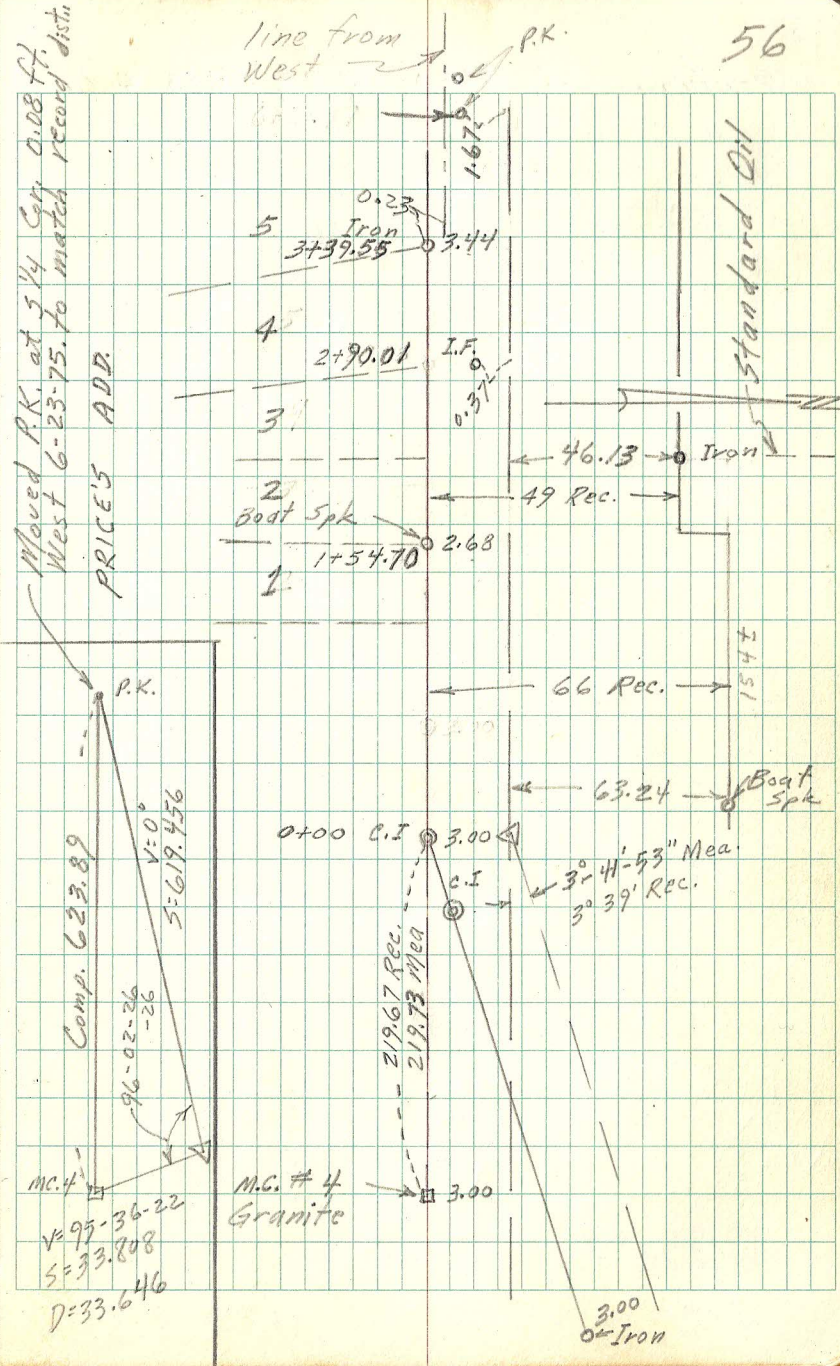 56
line from
West
P.K.
Moved P.K. at S 1/4 Cor. 0.08 ft.
West 6-23-75. to match record dist.
PRICE'S ADD.
1.67
0.23
5
Iron
3+39.55
3.44
4
2+90.01
I.F.
0.37
3
Standard Oil
46.13
Iron
2
49 Rec.
Boat Spk
2.68
1+54.70
1
154±
66 Rec.
P.K.
63.24
Boat
Spk
0+00 C.I
3.00
C.I
3°-41'-53" Mea.
3° 39' Rec.
V=0°
S=619.456
Comp. 623.89
96-02-26
-26
219.67 Rec.
219.73 Mea
MC.4
M.C. # 4
Granite
3.00
V=95-36-22
S=33.808
D=33.646
3.00
Iron